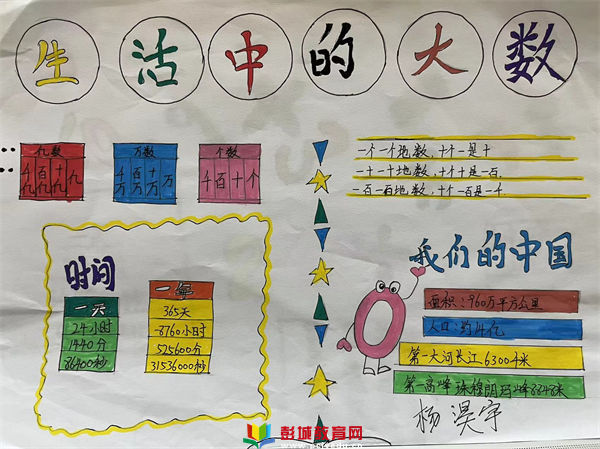 生活中的大数
亿数
千亿 百亿 十亿 亿
万数
千万 百万 十万 万
个数
千 百 十 个
一个一个地数,十个一是十
一十一十地数,十个十是一百,
一百一百地数,十个一百是一千,
时间
一天
24小时
1440分
86400秒
一年
365天
8760小时
525600分
31536000秒
我们的中国
面积:960万平方公里
人口:约14亿
第一大河长江6300千米
第一高峰珠穆朗玛峰8848米
杨淏宇
彭城教育网